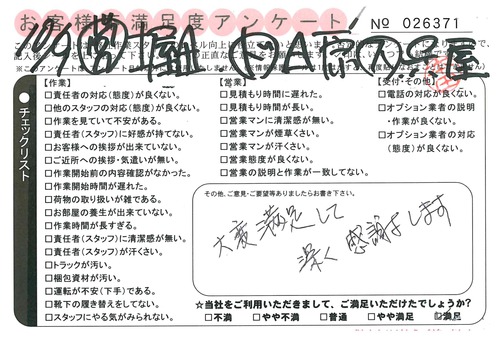 お客様満足度アンケート
No 026371
チェックリスト
【作業】
□責任者の対応(態度)が良くない。
□他のスタッフの対応(態度)が良くない。
□作業を見ていて不安がある。
□責任者(スタッフ)に好感が持てない。
□お客様への挨拶が出来ていない。
□ご近所への挨拶・気遣いが無い。
□作業開始前の内容確認がなかった。
□作業開始時間が遅れた。
□荷物の取り扱いが雑である。
□お部屋の養生が出来ていない。
□作業時間が長すぎる。
□責任者(スタッフ)に清潔感が無い。
□責任者(スタッフ)が汗くさい。
□トラックが汚い。
□梱包資材が汚い。
□運転が不安(下手)である。
□靴下の履き替えをしてない。
□スタッフにやる気がみられない。
【営業】
□見積もり時間に遅れた。
□見積もり時間が長い。
□営業マンに清潔感が無い。
□営業マンが煙草くさい。
□営業マンが汗くさい。
□営業態度が良くない。
□営業の説明と作業が一致してない。
【受付・その他】
□電話の対応が良くない。
□オプション業者の説明
・作業が良くない。
□オプション業者の対応
(態度)が良くない。
その他、ご意見・ご要望等ありましたらお書き下さい。
大変満足して
深く感謝します
★当社をご利用いただきまして、ご満足いただけたでしょうか?
□不満 □やや不満 □普通 □やや満足 ☑満足